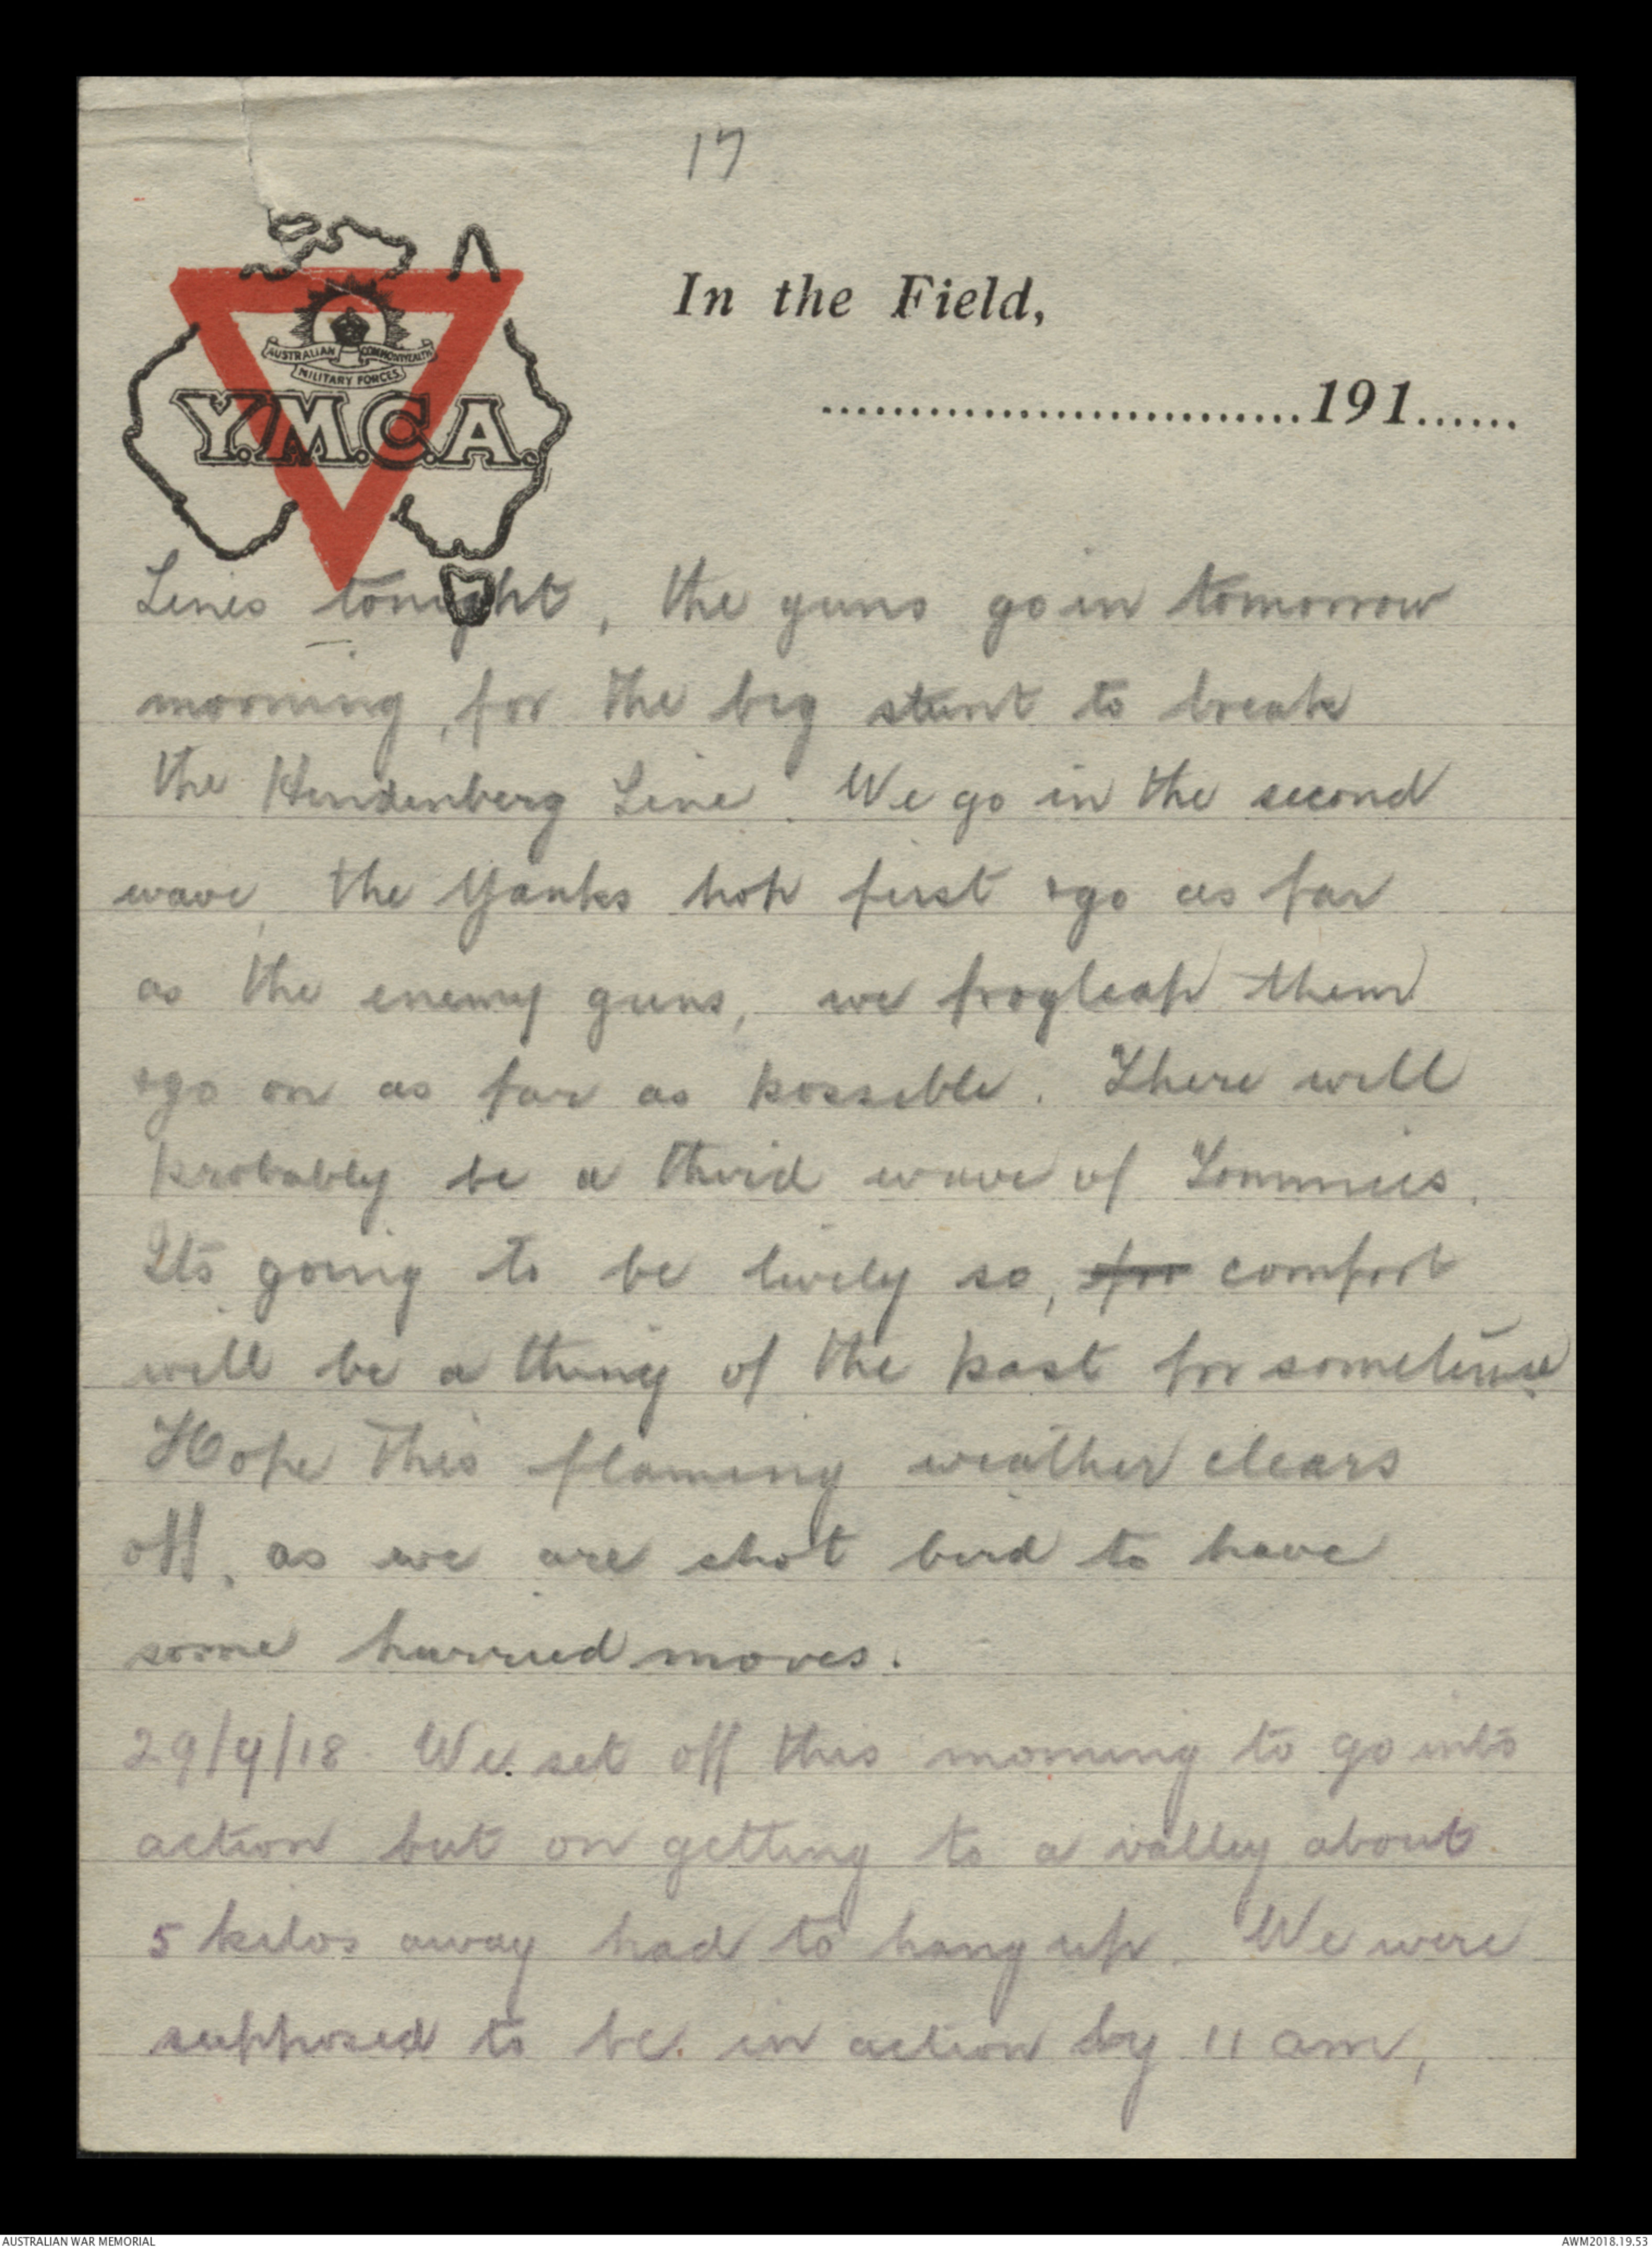 17
AUSTRALIAN COMMONWEALTH
MILITARY FORCES
Y.M.C.A.
In the Field,
............................191......
Lines tonight, the guns go in tomorrow
morning, for the big stunt to break
the Hindenberg Line. We go in the second
wave, the Yanks hop first & go as far
as the enemy guns, we frogleap them
& go on as far as possible. There will
probably be a third wave of Tommies.
Its going to be lively so, for comfort
will be a thing of the past for sometime.
Hope this flaming weather clears
off, as we are shot bird to have
some hurried moves.
29/9/18. We set off this morning to go into
action but on getting to a valley about
5 kilos away had to hang up. We were
supposed to be in action by 11 am,
AUSTRALIAN WAR MEMORIAL
AWM2018.19.53